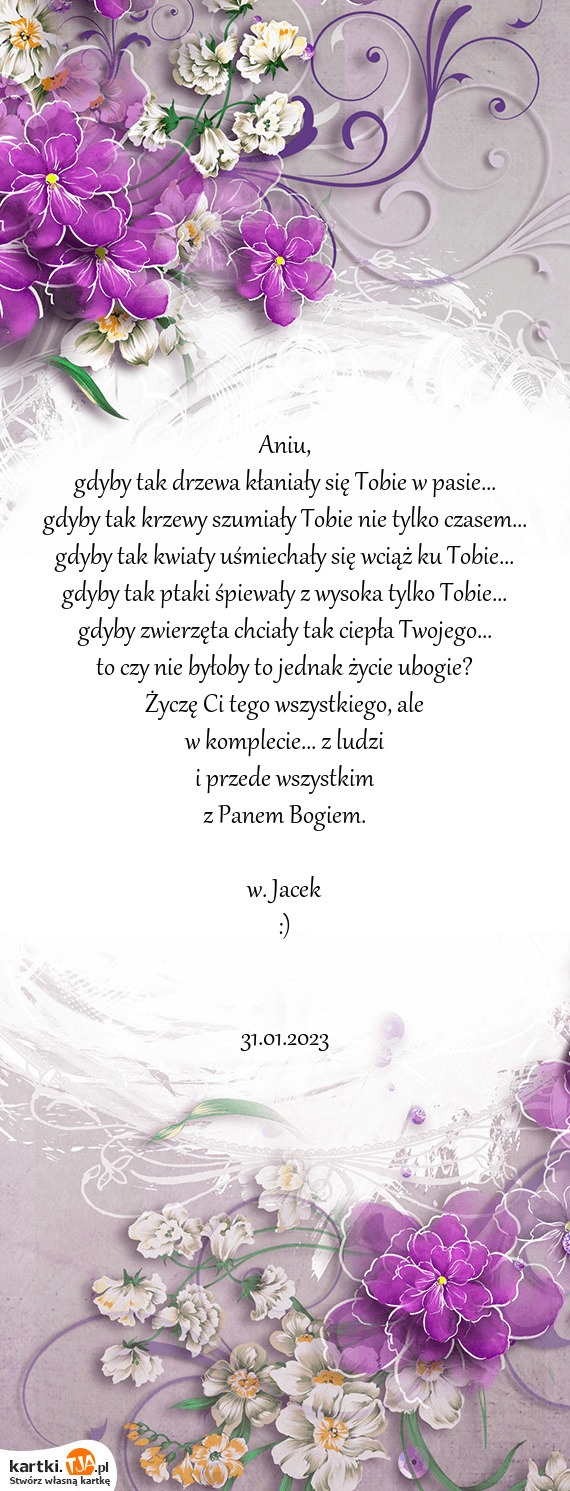 Aniu,
gdyby tak drzewa kłaniały się Tobie w pasie...
gdyby tak krzewy szumiały Tobie nie tylko czasem...
gdyby tak kwiaty uśmiechały się wciąż ku Tobie...
gdyby tak ptaki śpiewały z wysoka tylko Tobie...
gdyby zwierzęta chciały tak ciepła Twojego...
to czy nie byłoby to jednak życie ubogie?
Życzę Ci tego wszystkiego, ale
w komplecie... z ludzi
i przede wszystkim
z Panem Bogiem.
w. Jacek
:)
31.01.2023
kartki.TJA.pl
Stwórz własną kartkę